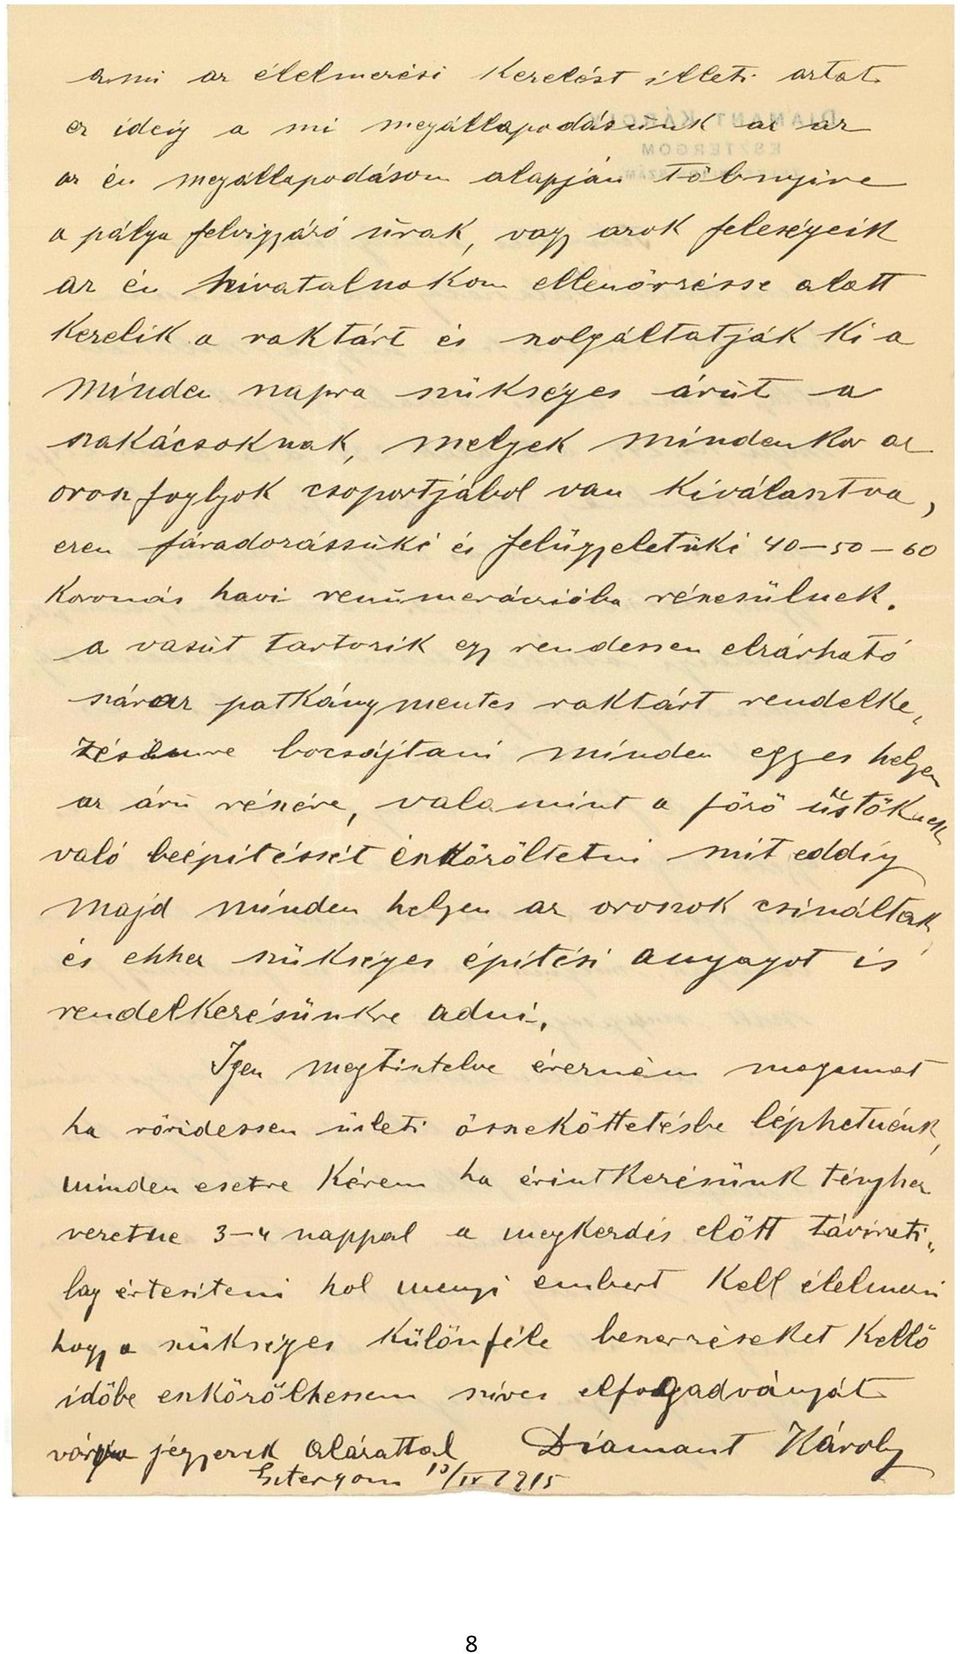 ami az élelmezési kezelést illeti aztat
ez ideig a mi megállapodásunk az az
az én megállapodásom alapján többnyire
a pálya felvigyázó úrak, vagy azok feleségeik
az én hivatalnokom ellenörzésse alatt
kezelik a raktárt és szolgáltatják ki a
minden napra szükséges árút a
szakácsoknak, melyek mindenkor az
orosz foglyok csoportjábol van kiválasztva,
ezen fáradozássúké és felügyeletüké 40–50–60
koronás havi renúmerációba részesülnek.
a vasút tartozik egy rendessen elzárható
száraz patkánymentes raktárt rendelke„
zésémre bocsájtani minden egyes helyen
az árú részére, valamint a fözö üstöknek
való beépítéssét eszközöltetni mit eddig
majd minden helyen az oroszok csináltak
és ehhez szükséges építési anyagot is
rendelkezésünkre adni,
Igen megtisztelve érezném magamat
ha rövidessen üzleti összeköttetésbe léphetnénk,
minden esetre kérem ha érintkezésünk tényhez
vezetne 3–4 nappal a megkezdés elött távirati„
lag értesíteni hol menyi embert kell élelmezni
hogy a szükséges különféle beszerzéseket kellö
idöbe eszközölhessem szives elfogadványát
várva jégyezek alázattal Diamant Károly
Esztergom 13/IV 1915
DIAMANT KÁROLY
ESZTERGOM
8